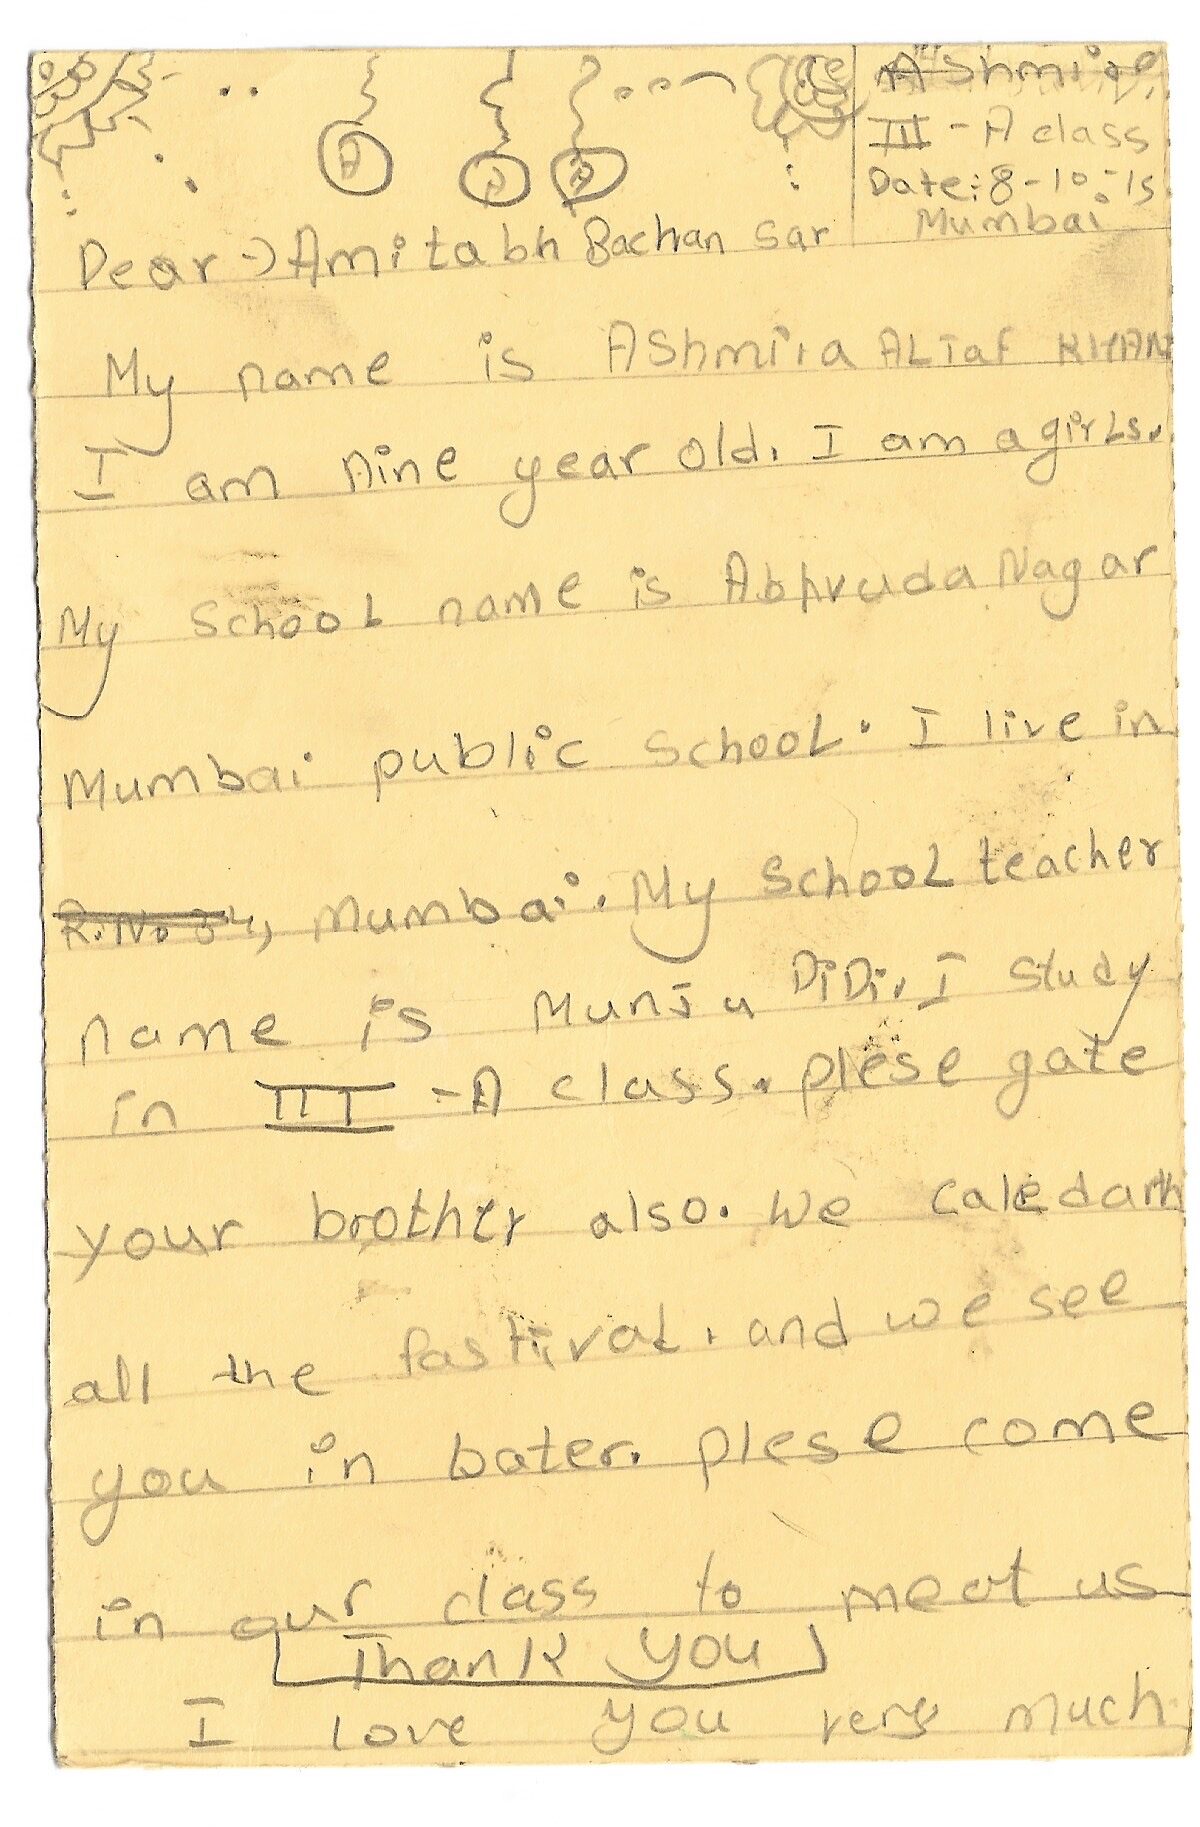 Ashmira
III - A class
Date: 8-10-15
Mumbai
A
A
Dear -> Amitabh Bachan Sar
My name is AShmira ALTaf KHAN
I am nine year old. I am a girls.
My School name is Abhvuda Nagar
Mumbai public School. I live in
R.No 84, Mumbai. My School teacher
name is MunJu DiDi. I Study
in III - A class. plese gate
your brother also. We
all the fastival. and we see
you in bater. plese come
in our class to meat us
Thank you
I love you very much.